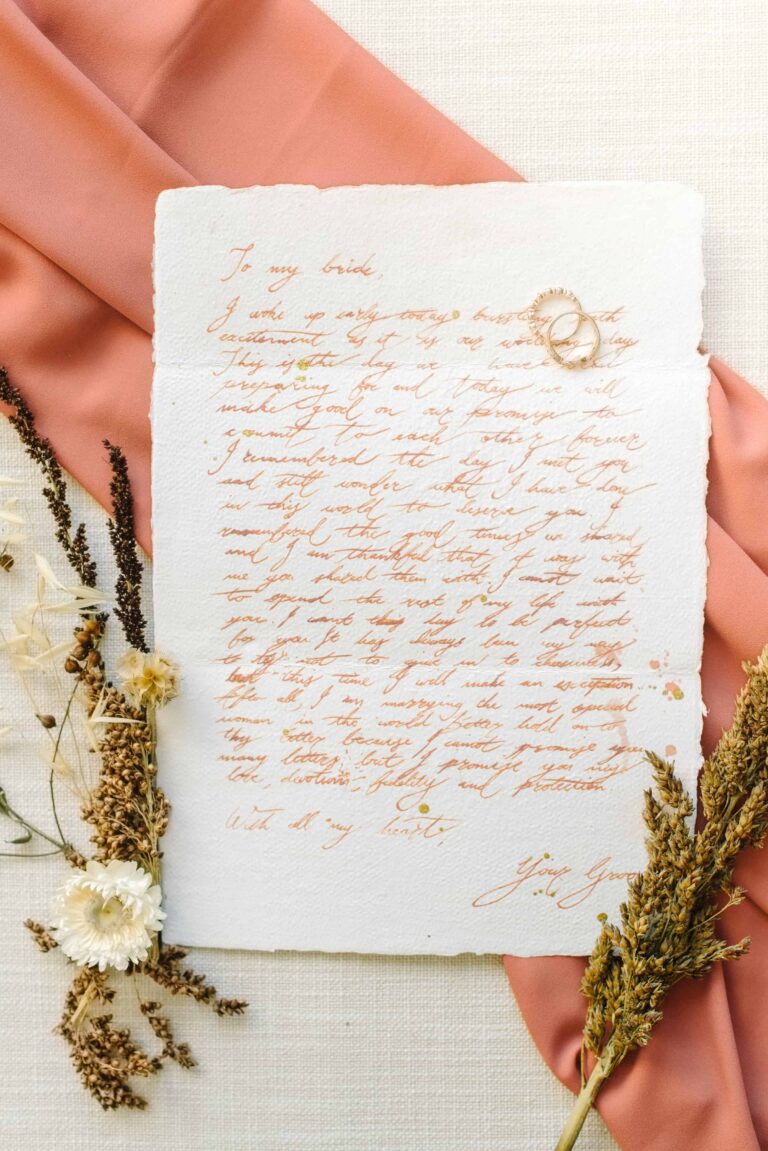 To my bride,
I woke up early today bursting with
excitement as it is our wedding day
This is the day we have
preparing for and today we will
make good on our promise to
commit to each other forever
I remembered the day I met you
and still wonder what I have done
in this world to deserve you I
remembered the good times we shared
and I am thankful that it was with
me you shared them with. I cannot wait
to spend the rest of my life with
you. I want this day to be perfect
for you. It has always been my
to not to give in to
but this time I will make an exception
After all, I am marrying the most special
woman in the world Better hold on to
thy letter because I cannot promise you
many letters, but I promise you my
love, devotions, fidelity and protection
With all my heart,
Your Groo